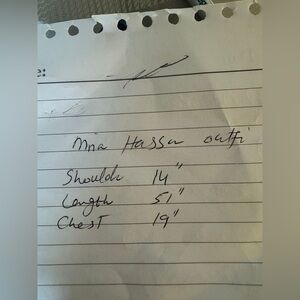 e:
Mria Hassan outfi
Should 14"
Length 51"
Chest 19"